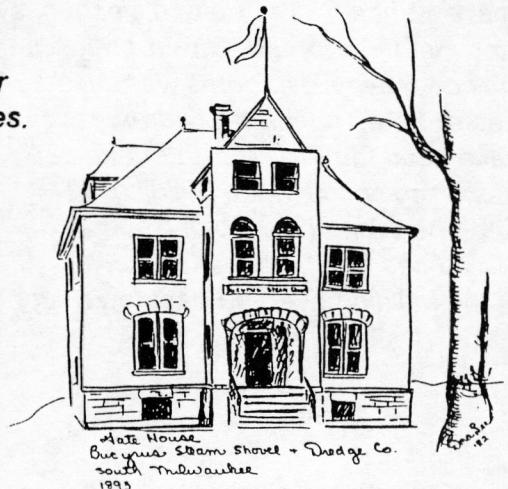 r
es.
Bucyrus Steam
Gate House
Bucyrus Steam Shovel + Dredge Co.
South Milwaukee
1893
'82